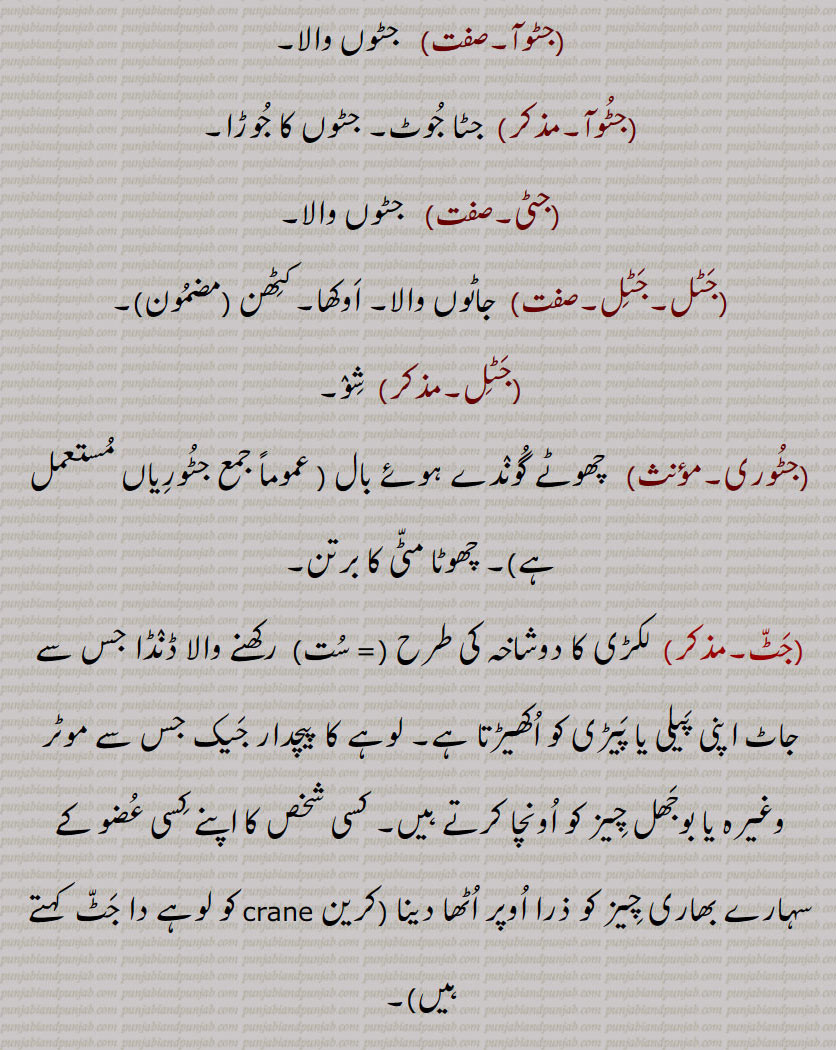 (جٹوآ۔صفت) جٹوں والا۔
(جٹُوآ۔مذکر) جٹا جُوٹ۔ جٹوں کا جُوڑا۔
(جٹی۔صفت) جٹوں والا۔
(جَٹل۔جَٹِل۔صفت) جاٹوں والا۔ اَوکھا۔ کٹِھن (مضمُون)۔
(جَٹِل۔مذکر) شِوْ۔
(جٹُوری۔مؤنث) چھوٹے گُونْدے ہوئے بال (عموماً جمع جٹُورِیاں مُستعمل
ہے)۔ چھوٹا مٹّی کا برتن۔
(جَٹّ۔مذکر) لکڑی کا دوشاخہ کی طرح (= سُت) رکھنے والا ڈنْڈا جس سے
جاٹ اپنی پَیلی یا پَیڑی کو اُکھیڑتا ہے۔ لوہے کا پیچدار جَیک جس سے موٹر
وغیرہ یا بوجَھل چِیز کو اُونچا کرتے ہیں۔ کسی شخص کا اپنے کِسی عُضو کے
سہارے بھاری چِیز کو ذرا اُوپر اُٹھا دینا (کرین crane کو لوہے دا جَٹّ کہتے
ہیں)۔